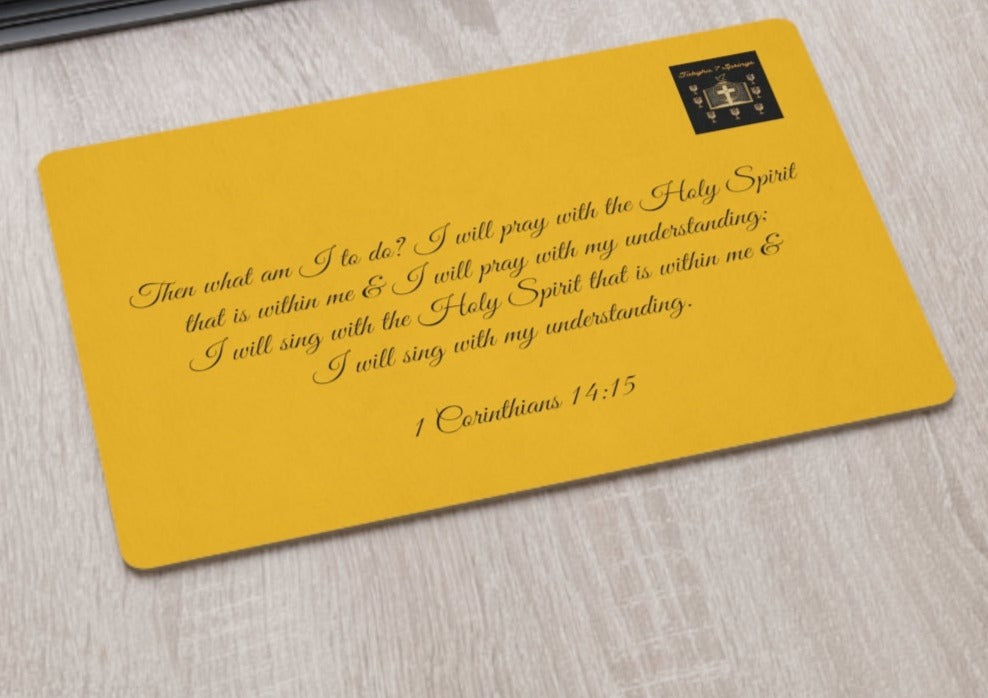 7 Springs
Then what am I to do? I will pray with the Holy Spirit
that is within me & I will pray with my understanding;
I will sing with the Holy Spirit that is within me &
I will sing with my understanding.
1 Corinthians 14:15